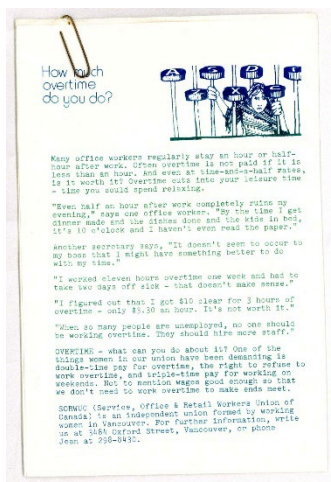 How much
overtime
do you do?
A S D F
Many office workers regularly stay an hour or half-
hour after work. Often overtime is not paid if it is
less than an hour. And even at time-and-a-half rates,
is it worth it? Overtime cuts into your leisure time
- time you could spend relaxing.
"Even half an hour after work completely ruins my
evening," says one office worker. "By the time I get
dinner made and the dishes done and the kids in bed,
it's 10 o'clock and I haven't even read the paper."
Another secretary says, "It doesn't seem to occur to
my boss that I might have something better to do
with my time."
"I worked eleven hours overtime one week and had to
take two days off sick - that doesn't make sense."
"I figured out that I got $10 clear for 3 hours of
overtime - only $3.30 an hour. It's not worth it."
"When so many people are unemployed, no one should
be working overtime. They should hire more staff."
OVERTIME - what can you do about it? One of the
things women in our union have been demanding is
double-time pay for overtime, the right to refuse to
work overtime, and triple-time pay for working on
weekends. Not to mention wages good enough so that
we don't need to work overtime to make ends meet.
SORWUC (Service, Office & Retail Workers Union of
Canada) is an independent union formed by working
women in Vancouver. For further information, write
us at 3484 Oxford Street, Vancouver, or phone
Jean at 298-8430.